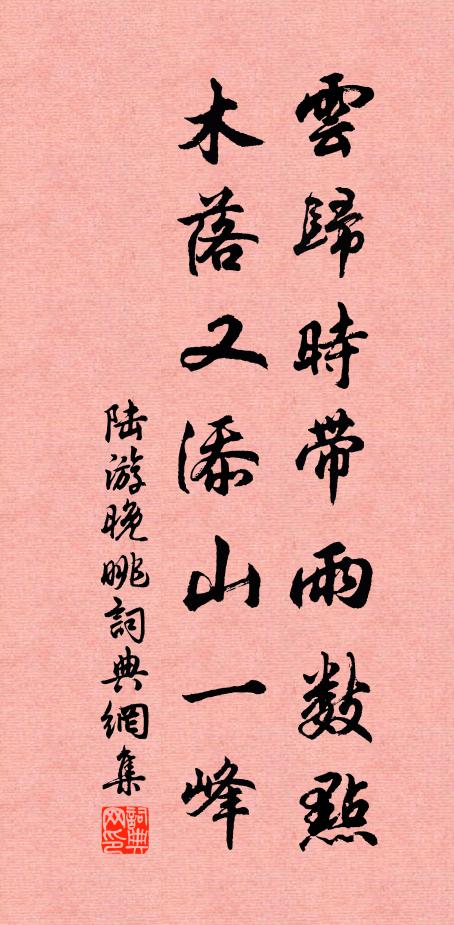 雲歸時带雨数點
木落又添山一峰
陆游晚眺詞典網集
詞典网印